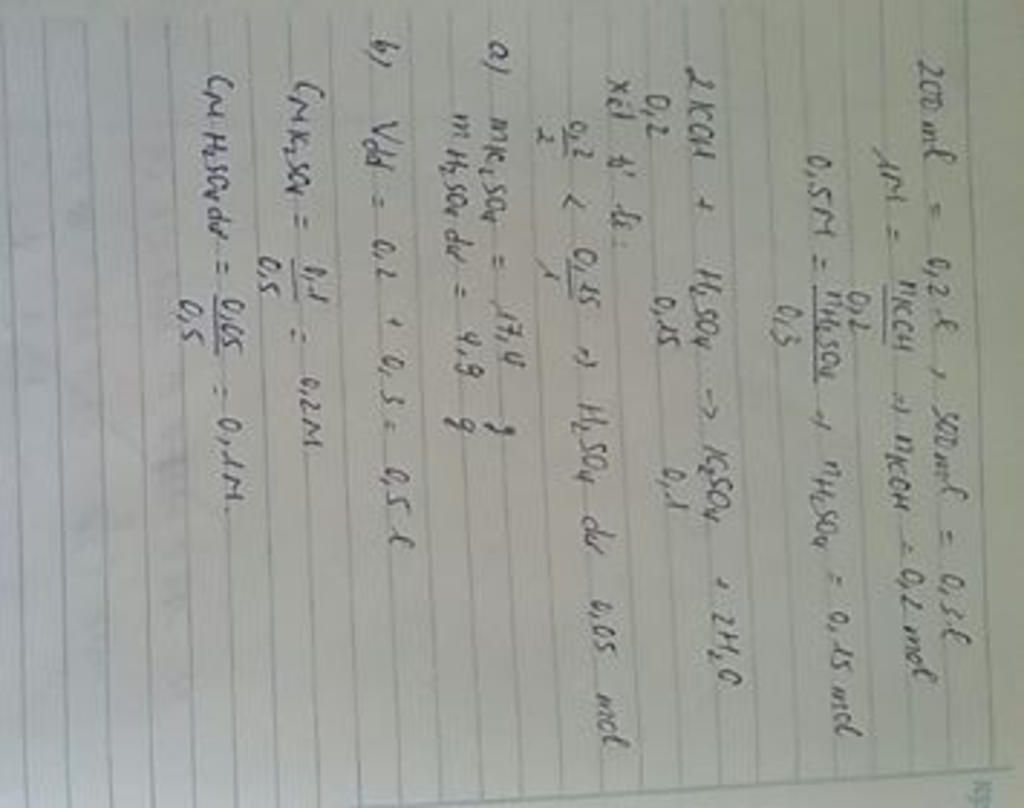 200 ml = 0,2 l, 300 ml = 0,3 l
1M = nKOH / 0,2 → nKOH = 0,2 mol
0,5M = nH₂SO₄ / 0,3 → nH₂SO₄ = 0,15 mol
2KOH + H₂SO₄ → K₂SO₄ + 2H₂O
0,2 0,15 0,1
xét tỉ lệ:
0,2/2 < 0,15/1 → H₂SO₄ dư 0,05 mol
a) mK₂SO₄ = 17,4 g
mH₂SO₄ dư = 4,9 g
b) Vdd = 0,2 + 0,3 = 0,5 l
CM K₂SO₄ = 0,1/0,5 = 0,2M.
CM H₂SO₄ dư = 0,05/0,5 = 0,1M.